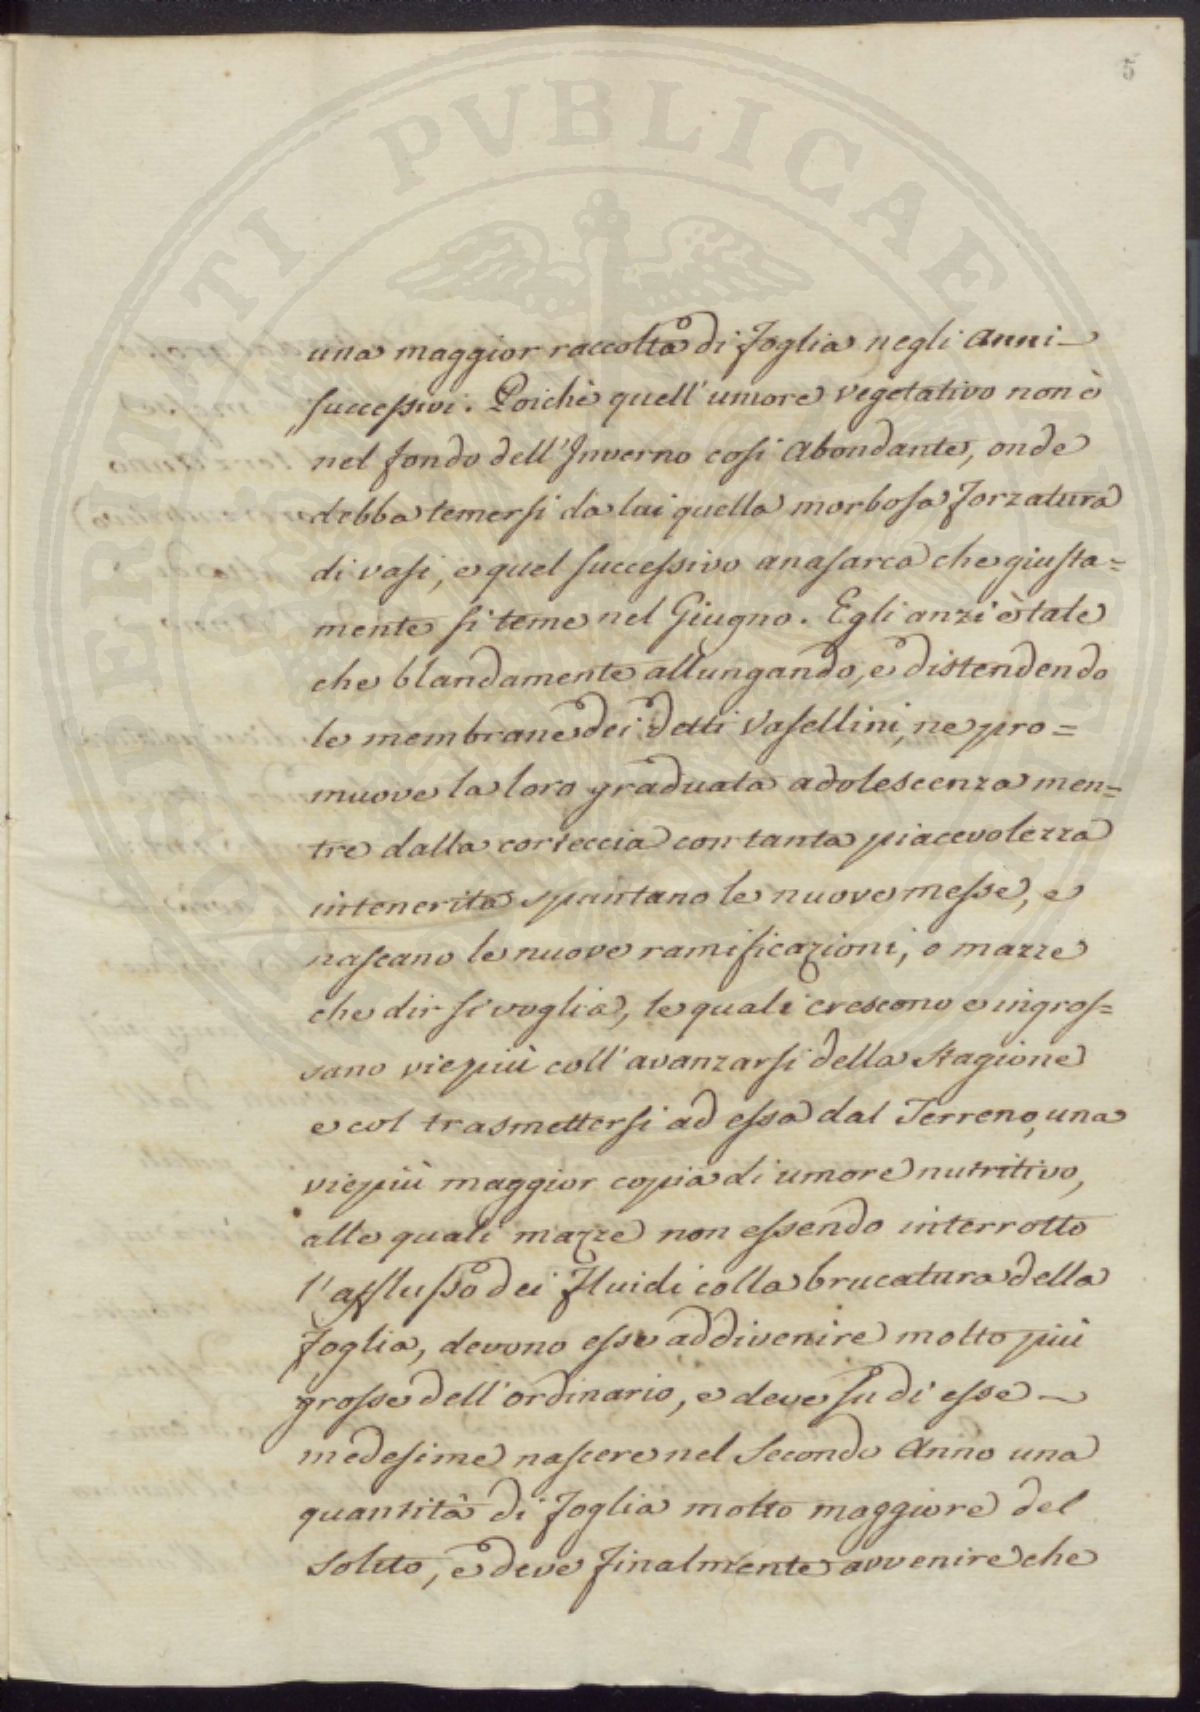 5
PROSPERITATI PVBLICAE
una maggior raccolta di foglia negli Anni
successivi. Poichè quell'umore vegetativo non è
nel fondo dell'Inverno così Abondante, onde
debba temersi da lui quella morbosa forzatura
di vasi, e quel successivo anasarca che giusta=
mente si teme nel Giugno. Egli anzi è tale
che blandamente allungando, e distendendo
le membrane dei detti Vasellini, ne pro=
muove la loro graduata adolescenza men=
tre dalla corteccia con tanta piacevolezza
intenerita spuntano le nuove messe, e
nascano le nuove ramificazioni, o mazze
che dir si voglia, le quali crescono e ingros=
sano viepiù coll'avanzarsi della Stagione
e col trasmettersi ad essa dal Terreno, una
viepiù maggior copia di umore nutritivo,
alle quali mazze non essendo interrotto
l'afflusso dei fluidi colla brucatura della
foglia, devono esse addivenire molto più
grosse dell'ordinario, e deve su di esse
medesime nascere nel Secondo Anno una
quantità di foglia molto maggiore del
solito, e deve finalmente avvenire che